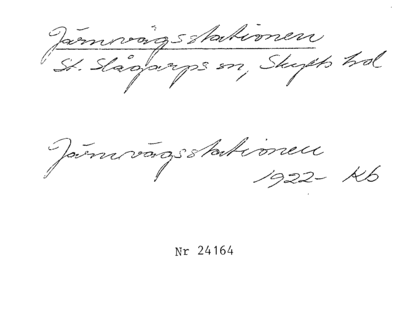 Järnvägsstationen
St. Slågarps sn, Skytts hd
Järnvägsstationen
1922- Kb
Nr 24164